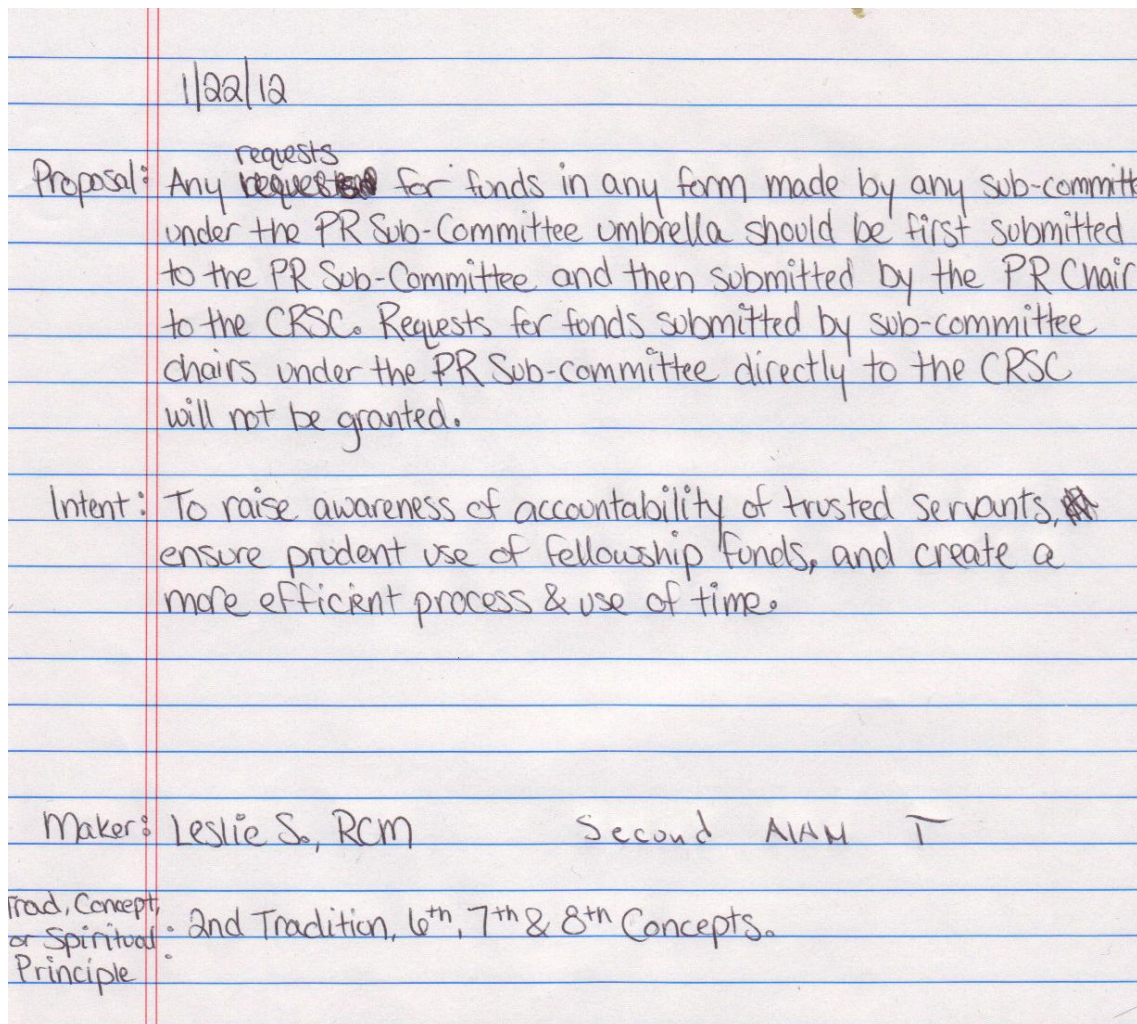 1/22/12
requests
Proposal: Any for funds in any form made by any sub-committ
under the PR Sub-Committee umbrella should be first submitted
to the PR Sub-Committee and then submitted by the PR Chair
to the CRSC. Requests for funds submitted by sub-committee
chairs under the PR Sub-committee directly to the CRSC
will not be granted.
Intent: To raise awareness of accountability of trusted servants,
ensure prudent use of fellowship funds, and create a
more efficient process & use of time.
Maker: Leslie S., RCM Second AlAN T
Trad, Concept,
or Spiritual : 2nd Tradition, 6th, 7th & 8th Concepts.
Principle